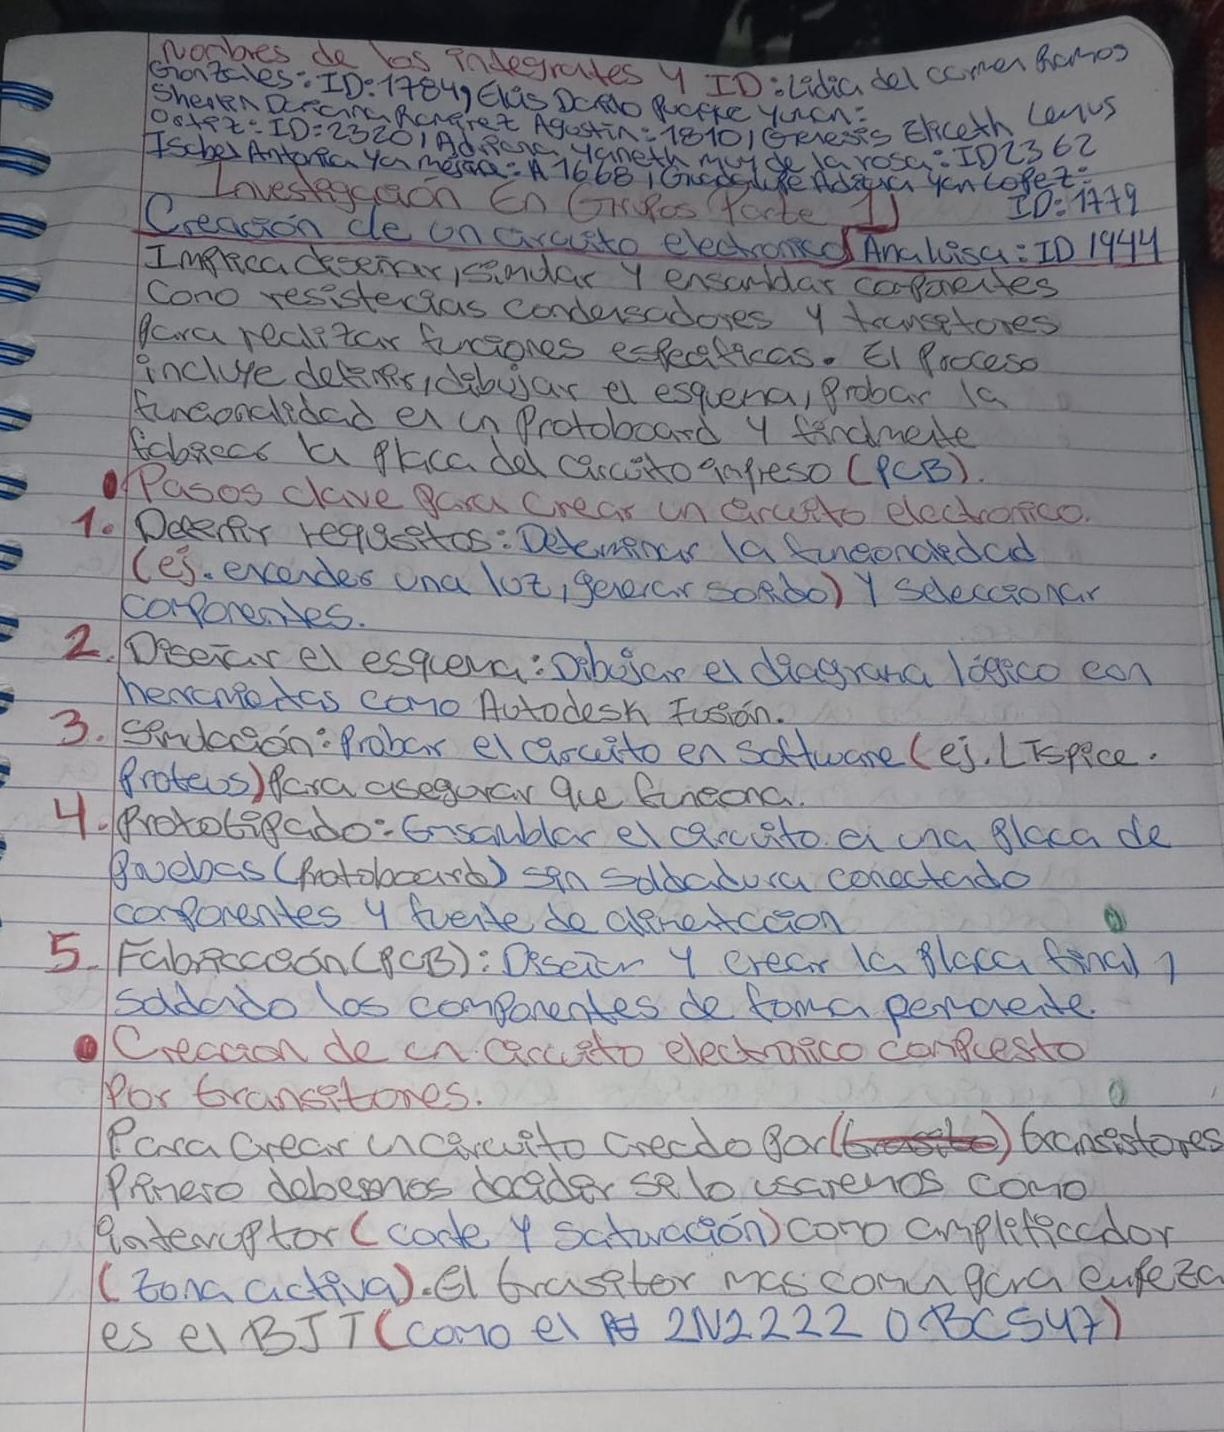 Nombres de los integrantes y ID: Lidia del carmen Ramos
Gonzales: ID: 1784, Elias Yucan:
Ramirez Agustin: 1810, Genesis Eliceth Lemus
Ostiz: ID: 2320, Adriana Yaneth muy de la rosa: ID 2362
Antonia Ya mesina: A 1668, Guadalupe Yan Lopez:
Investigación En Grupos Parte 1) ID: 1779
Creación de un circuito electronico Ana luisa: ID 1944
Implica diseñar, simular y ensamblar componentes
Como resistencias condensadores y transitores
Para realizar funciones especificas. El Proceso
incluye definir, dibujar el esquema, Probar la
funcionalidad en un Protoboard y finalmente
fabricar la placa del circuito impreso (PCB).
Pasos clave para Crear un circuito electronico.
1. Definir requisitos: Determinar la funcionalidad
(ej. encender una luz, generar sonido) y seleccionar
componentes.
2. Diseñar el esquema: Dibujar el diagrama lógico con
herramientas como Autodesk Fusión.
3. Simulación: Probar el circuito en Software (ej. LTspice.
Proteus) Para asegurar que funciona.
4. Prototipado: Ensamblar el circuito en una Placa de
Pruebas (Protoboard) sin soldadura conectado
componentes y fuente de alimentación
5. Fabricación (PCB): Diseñar y crear la Placa final,
soldando los componentes de forma permanente.
Creacion de un circuito electronico compuesto
Por transitores.
Para Crear un circuito creado por () transistores
Primero debemos decidir si lo usaremos como
interruptor (corte y saturación) como amplificador
(zona activa). El transitor mas comun para empezar
es el BJT (como el 2N2222 O BC547)